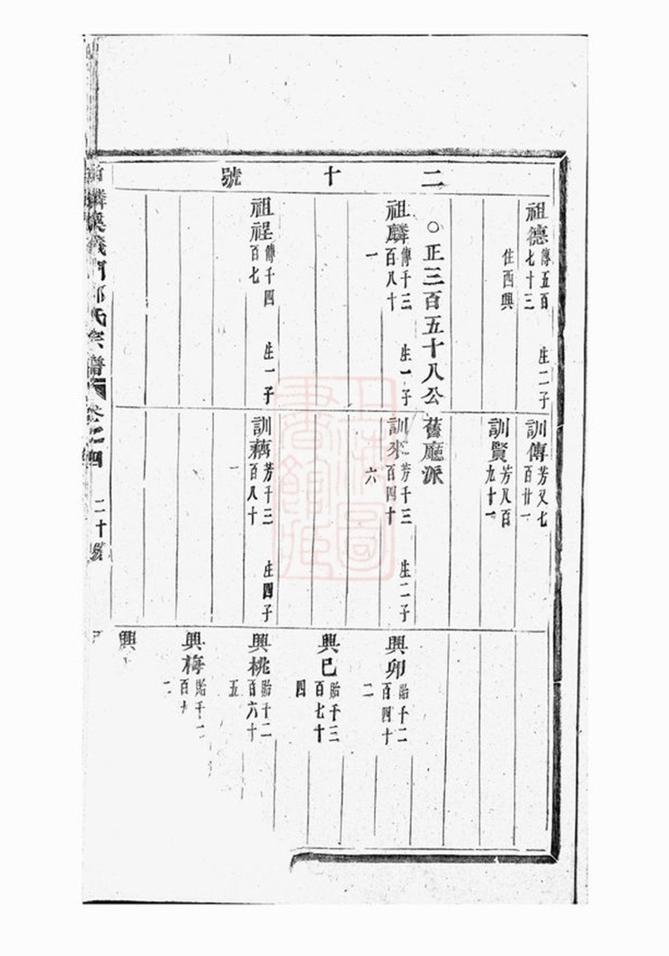 二十號
祖德 傳五百七十三 生二子
住西興
○正三百五十八公 舊廳派
祖麟 傳千三百八十一 生一子
祖禋 傳千四百七 生一子
訓傳 芳又七百廿一
訓賢 芳八百九十一
訓來 芳千三百四十六 生二子
訓藕 芳千三百八十一 生四子
興卯 貽千二百四十二
興巳 貽千三百七十四
興桃 貽千二百六十五
興梅 貽千二百
興
義門鄭氏宗譜 卷之四 二十號
上海圖書館藏